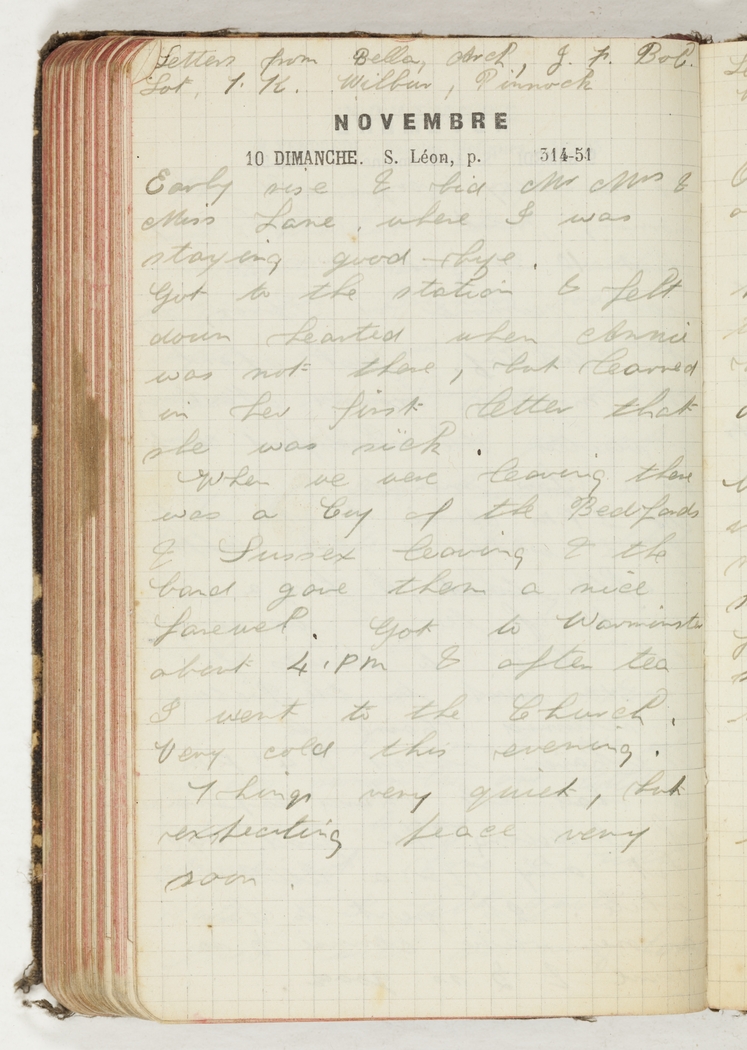 Letters from Bella, Arch, J. F. Bob.
Lot, T. K. Wilbur, Pinnock
NOVEMBRE
10 DIMANCHE. S. Léon, p. 314-51
Early rise & bid Mr Mrs &
Miss Lane, where I was
staying good-bye.
Got to the station & felt
down hearted when Annie
was not there, but learned
in her first letter that
she was sick.
When we were leaving there
was a Coy of the Bedfords
& Sussex leaving & the
band gave them a nice
farewel. Got to Warminster
about 4.PM & after tea
I went to the Church.
Very cold this evening.
Things very quiet, but
expecting peace very
soon.